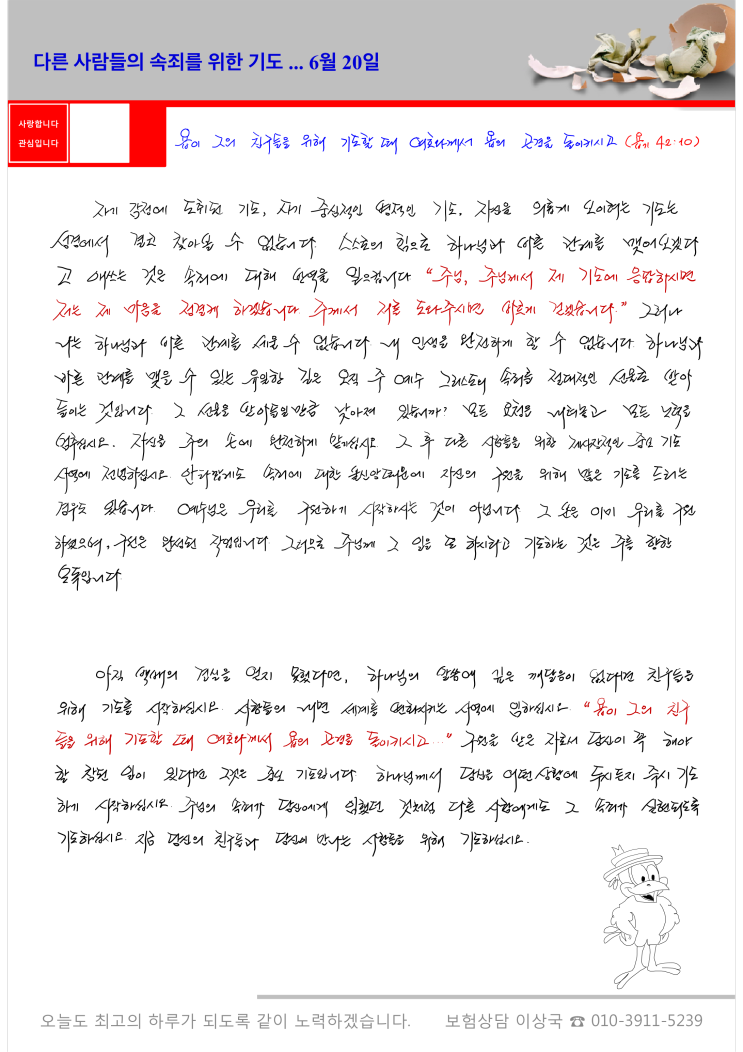 다른 사람들의 속죄를 위한 기도 ... 6월 20일
사랑합니다
관심입니다
욥이 그의 친구들을 위해 기도할 때 여호와께서 욥의 곤경을 돌이키시고 (욥기 42:10)
자기 감정에 도취된 기도, 자기 중심적인 병적인 기도, 자신을 의롭게 보이려는 기도는
성경에서 결코 찾아볼 수 없습니다. 스스로의 힘으로 하나님과 바른 관계를 맺어보겠다
고 애쓰는 것은 속죄에 대해 반역을 일으킵니다 “주님, 주님께서 제 기도에 응답하시면
저는 제 마음을 정결케 하겠습니다 주께서 저를 도와주시면 바르게 걷겠습니다.” 그러나
나는 하나님과 바른 관계를 세울 수 없습니다. 내 인생을 완전하게 할 수 없습니다. 하나님과
바른 관계를 맺을 수 있는 유일한 길은 오직 주 예수 그리스도의 속죄를 절대적인 선물로 받아
들이는 것입니다. 그 선물을 받아들일만큼 낮아져 있습니까? 모든 요청을 내려놓고 모든 노력을
멈추십시오. 자신을 주의 손에 완전하게 맡기십시오. 그 후 다른 사람들을 위한 제사장적인 중보 기도
사역에 전념하십시오. 안타깝게도 속죄에 대한 불신앙때문에 자신의 구원을 위해 많은 기도를 드리는
경우도 있습니다. 예수님은 우리를 구원하기 시작하시는 것이 아닙니다. 그 분은 이미 우리를 구원
하셨으며, 구원은 완성된 작업입니다. 그러므로 주님께 그 일을 또 하시라고 기도하는 것은 주를 향한
모독입니다.
아직 백배의 결실을 얻지 못했다면, 하나님의 말씀에 깊은 깨달음이 없다면 친구들을
위해 기도를 시작하십시오. 사람들의 내면 세계를 변화시키는 사역에 임하십시오. “욥이 그의 친구
들을 위해 기도할 때 여호와께서 욥의 곤경을 돌이키시고...” 구원을 받은 자로서 당신이 꼭 해야
할 참된 일이 있다면 그것은 중보 기도입니다. 하나님께서 당신을 어떤 상황에 두시든지 즉시 기도
하기 시작하십시오. 주님의 속죄가 당신에게 임했던 것처럼 다른 사람에게도 그 속죄가 실현되도록
기도하십시오. 지금 당신의 친구들과 당신이 만나는 사람들을 위해 기도하십시오.
오늘도 최고의 하루가 되도록 같이 노력하겠습니다. 보험상담 이상국 ☎ 010-3911-5239